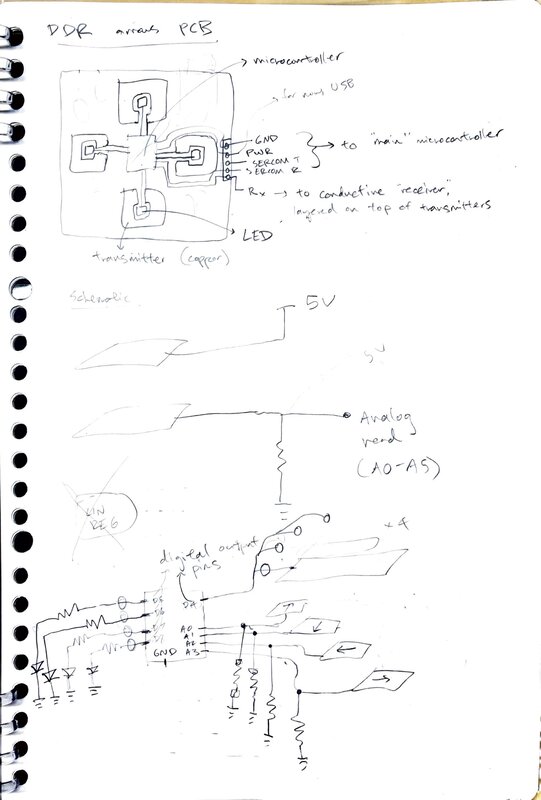 DDR arrows PCB
microcontroller
for now USB
GND
PWR
SERCOM T
SERCOM R
to "main" microcontroller
Rx → to conductive "receiver",
layered on top of transmitters
LED
transmitter (copper)
Schematic
5V
5V
Analog
read
(A0-A5)
LIN
REG
x4
digital output
pins
A0
A1
A2
A3
GND